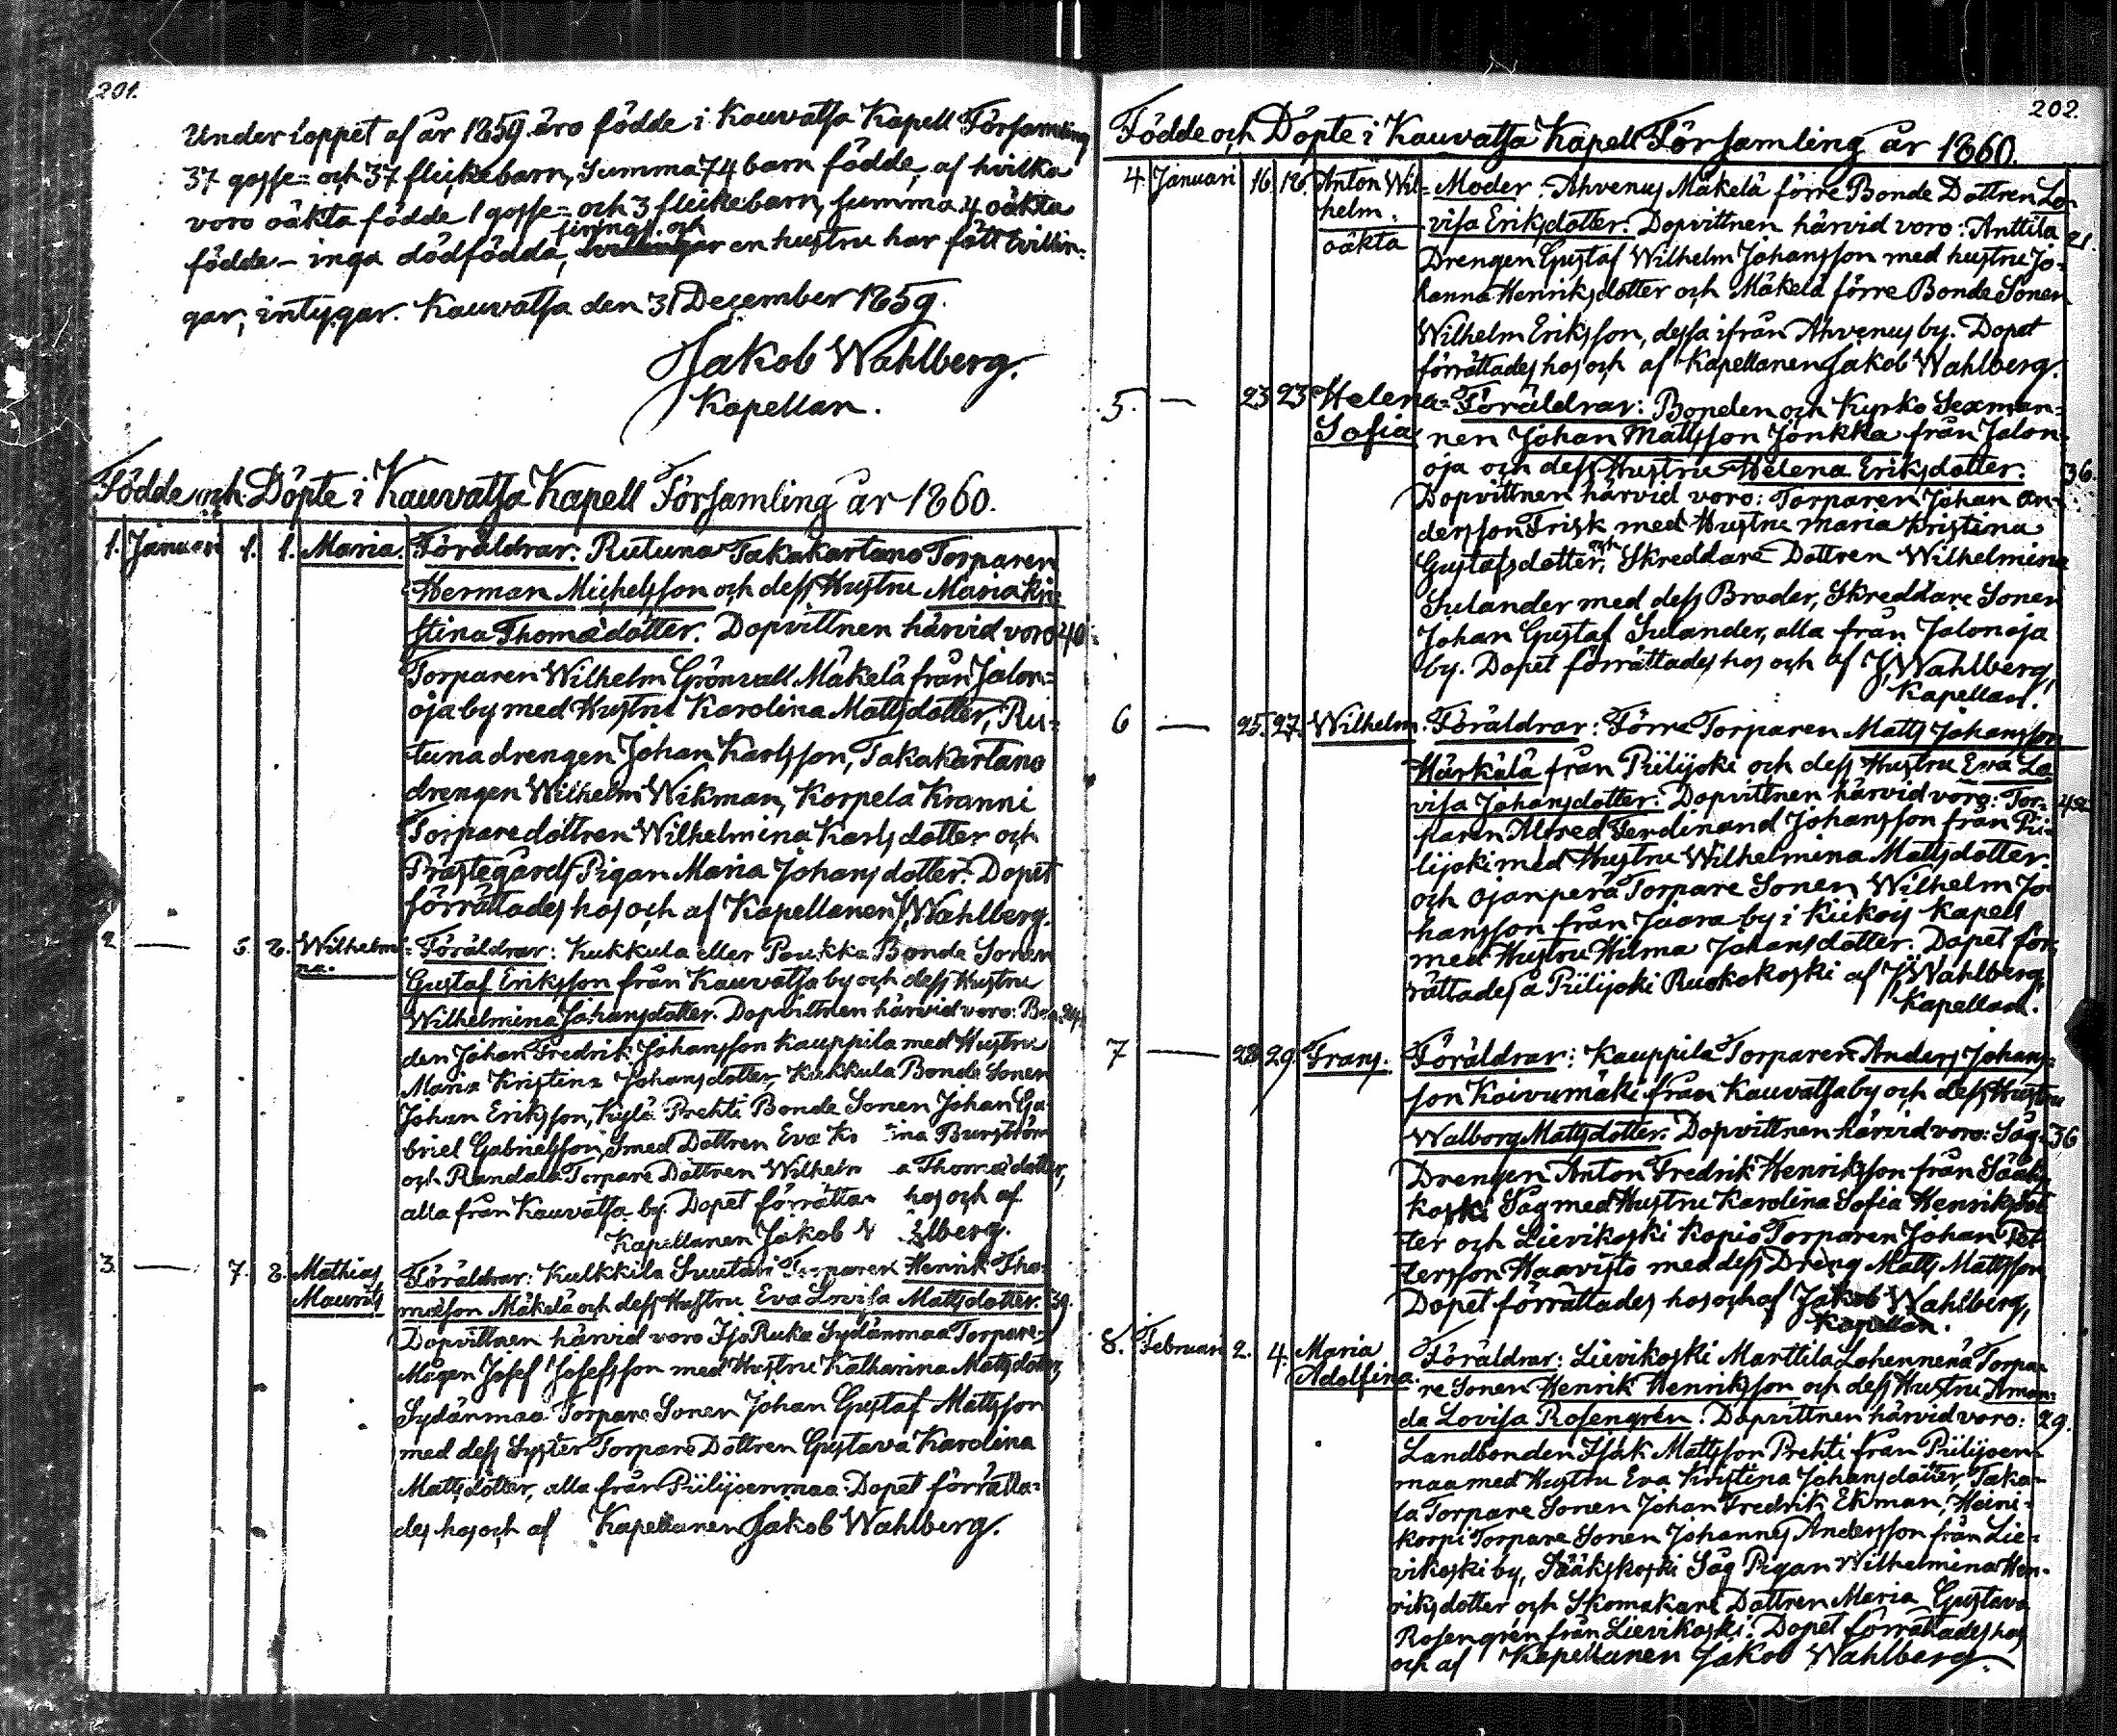 201.
Under loppet af år 1859 äro födde i Kauvatsa Kapell Församling
37 gosse= och 37 flickebarn, Summa 74 barn födde, af hvilka
voro oäkta födde 1 gosse= och 3 flickebarn, summa 4 oäkta
födde – inga dödfödda, en hustru har fått tvillin-
gar, intygar. Kauvatsa den 31 December 1859.
Jakob Wahlberg.
Kapellan.
Födde och Döpte i Kauvatsa Kapell Församling år 1860.
1. Januari 1. 1. Maria. Föräldrar: Rutuna Takakartano Torparen
Herman Michelsson och dess Hustru Maria Kri-
stina Thomædotter. Dopvittnen härvid voro 40.
Torparen Wilhelm Grönvall Mäkelä från Jalon=
oja by med Hustru Karolina Mattsdotter, Ru-
tuna drengen Johan Karlsson, Takakartano
drengen Wilhelm Wikman, Korpela Kranni
Torpare dottren Wilhelmina Karlsdotter och
Prästegårds Pigan Maria Johansdotter. Dopet
förrättades hos och af Kapellanen J. Wahlberg.
2 — 5. 8. Wilhelmi= Föräldrar: Kukkula eller Poukka Bonde Sonen
na. Gustaf Eriksson från Kauvatsa by och dess Hustru
Wilhelmina Johansdotter. Dopvittnen härvid voro: Bon- 24.
den Johan Fredrik Johansson Kauppila med Hustru
Maria Kristina Johansdotter, Kukkula Bonde Sonen
Johan Eriksson, Kylä Prehti Bonde Sonen Johan Ga-
briel Gabrielsson, Smed Dottren Eva Burström
och Randala Torpare Dottren Thomædotter,
alla från Kauvatsa by. Dopet hos och af
Kapellanen Jakob
3. — 7. 8. Mathias Föräldrar: Kulkkila Suutari Torparen Henrik Tho-
Maurits mæson Mäkelä och dess Hustru Eva Lovisa Mattsdotter. 39.
Dopvittnen härvid voro Iso Ruka Sydänmaa Torpare-
Mågen Josef Josefsson med Hustru Katharina Mattsdotter,
Sydänmaa Torpare Sonen Johan Gustaf Mattsson
med dess Syster Torpare Dottren Gustava Karolina
Mattsdotter, alla från Piilijoenmaa. Dopet förrätta-
des hos och af Kapellanen Jakob Wahlberg.
202.
Födde och Döpte i Kauvatsa Kapell Församling år 1860.
4. Januari 16 18. Anton Wil- Moder: Ahvenus Mäkelä förre Bonde Dottren Lo-
helm. visa Eriksdotter. Dopvittnen härvid voro: Anttila 21.
oäkta Drengen Gustaf Wilhelm Johansson med hustru Jo-
hanna Henriksdotter och Mäkelä förre Bonde Sonen
Wilhelm Eriksson, dessa ifrån Ahvenus by. Dopet
förrättades hos och af Kapellanen Jakob Wahlberg.
5. — 23 23 Helena Föräldrar: Bonden och Kyrko Sexman-
Sofia nen Johan Mattsson Jonkka från Jalon-
oja och dess Hustru Helena Eriksdotter. 36.
Dopvittnen härvid voro: Torparen Johan An-
dersson Frisk med Hustru Maria Kristina
Gustafsdotter, och Skreddare Dottren Wilhelmina
Sulander med dess Broder, Skreddare Sonen
Johan Gustaf Sulander, alla från Jalonoja
by. Dopet förrättades hos och af J. Wahlberg,
Kapellan.
6 — 25. 27. Wilhelm. Föräldrar: Förre Torparen Matts Johansson
Härkälä från Piilijoki och dess Hustru Eva Lo-
visa Johansdotter. Dopvittnen härvid voro: Tor- 42
paren Alfred Ferdinand Johansson från Pii-
lijoki med Hustru Wilhelmina Mattsdotter.
och Ojanperä Torpare Sonen Wilhelm Jo-
hansson från Jaara by i Kiikois Kapell
med Hustru Hilma Johansdotter. Dopet för-
rättades å Piilijoki Ruokokoski af J. Wahlberg,
Kapellan.
7 — 28 29. Frans. Föräldrar: Kauppila Torparen Anders Johans-
son Koivumäki från Kauvatsa by och dess Hustru
Walborg Mattsdotter. Dopvittnen härvid voro: Såg- 36
Drengen Anton Fredrik Henriksson från Sääks-
koski Såg med Hustru Karolina Sofia Henriksdot-
ter och Lievikoski Kopio Torparen Johan Pet-
tersson Haavisto med dess Dräng Matts Mattsson
Dopet förrättades hos och af Jakob Wahlberg,
Kapellan.
8. Februari 2. 4. Maria Föräldrar: Lievikoski Marttila Lohennenä Torpa-
Adolfina. re Sonen Henrik Henriksson och dess Hustru Aman-
da Lovisa Rosengrén. Dopvittnen härvid voro: 29.
Landbonden Isak Mattsson Prehti från Piilijoen-
maa med Hustru Eva Kristina Johansdotter, Taka-
la Torpare Sonen Johan Fredrik Ekman, Heini-
korpi Torpare Sonen Johannes Andersson från Lie-
vikoski by, Sääkskoski Såg Pigan Wilhelmina Hen-
riksdotter och Skomakare Dottren Maria Gustava
Rosengrén från Lievikoski. Dopet förrättades hos
och af Kapellanen Jakob Wahlberg.